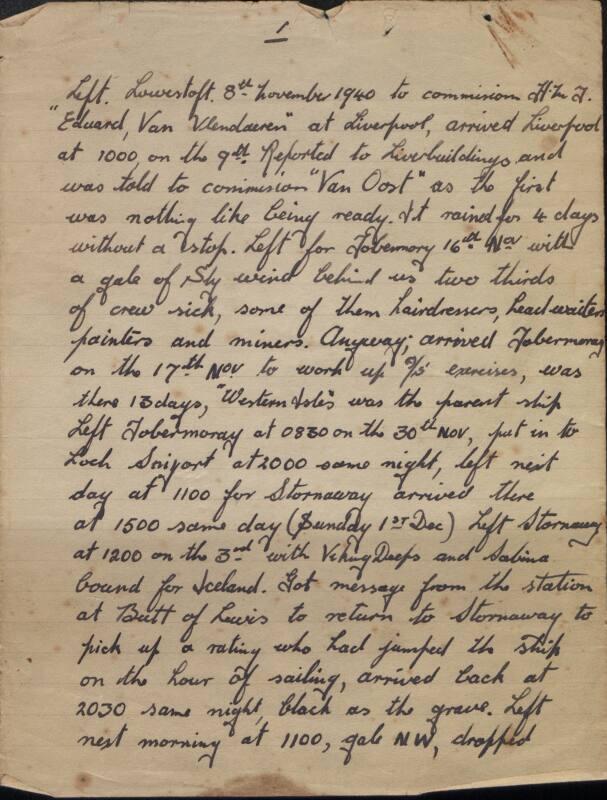 1
Left. Lowestoft. 8th November 1940 to commision H.M.T.
"Eduard, Van Vlendaeren" at Liverpool, arrived Liverpool
at 1000, on the 9th Reported to Liverbuildings, and
was told to commision "Van Oost" as the first
was nothing like being ready. It rained for 4 days
without a stop. Left for Tobermory 16th Nov with
a gale of Sly wind behind us two thirds
of crew sick, some of them hairdressers, head waiters
painters and miners. Anyway; arrived Tobermoray
on the 17th Nov to work up A/S exercises, was
there 13 days, "Western Isles" was the parent ship
Left Tobermoray at 0830 on the 30th Nov, put in to
Loch at 2000 same night, left next
day at 1100 for Stornaway arrived there
at 1500 same day (Sunday 1st Dec) Left Stornaway
at 1200 on the 3rd with Viking Deeps and Sabina
bound for Iceland. Got message from the station
at Butt of Lewis to return to Stornaway to
pick up a rating who had jumped the ship
on the hour of sailing, arrived back at
2030 same night, black as the grave. Left
next morning at 1100, gale NW, dropped